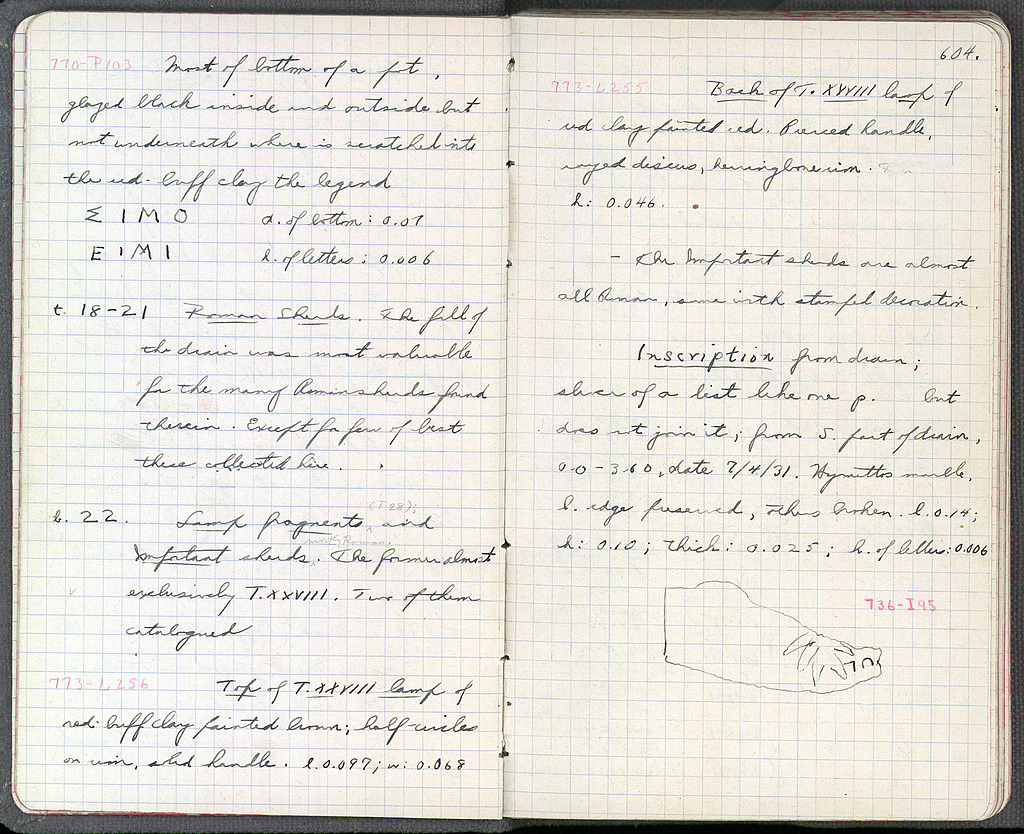 770-P103 Most of bottom of a pot,
glazed black inside and outside but
not underneath where is scratched into
the red-buff clay the legend
Σ I M O d. of bottom: 0.07
E I M I h. of letters: 0.006
t. 18-21 Roman Sherds. The fill of
the drain was most valuable
for the many Roman sherds found
therein. Except for few of best
these collected here.
b. 22. Lamp fragments and
(T 28);
mostly Roman.
Important sherds. The former almost
exclusively T. XXVIII. Two of them
catalogued
773-L256 Top of T. XXVIII lamp of
red-buff clay painted brown; half-circles
on rim, solid handle. l. 0.097; w: 0.068
604.
773-L255 Back of T. XXVIII lamp of
red clay painted red. Pierced handle,
rayed discus, herringbone rim.
h: 0.046.
- The Important sherds are almost
all Roman, some with stamped decoration.
Inscription from drain;
sliver of a list like one p. but
does not join it; from S. part of drain,
0.0-3.60, date 7/4/31. Hymettos marble.
l. edge preserved, others broken. l. 0.14;
h: 0.10; thick: 0.025; h. of letter: 0.006
736-I95